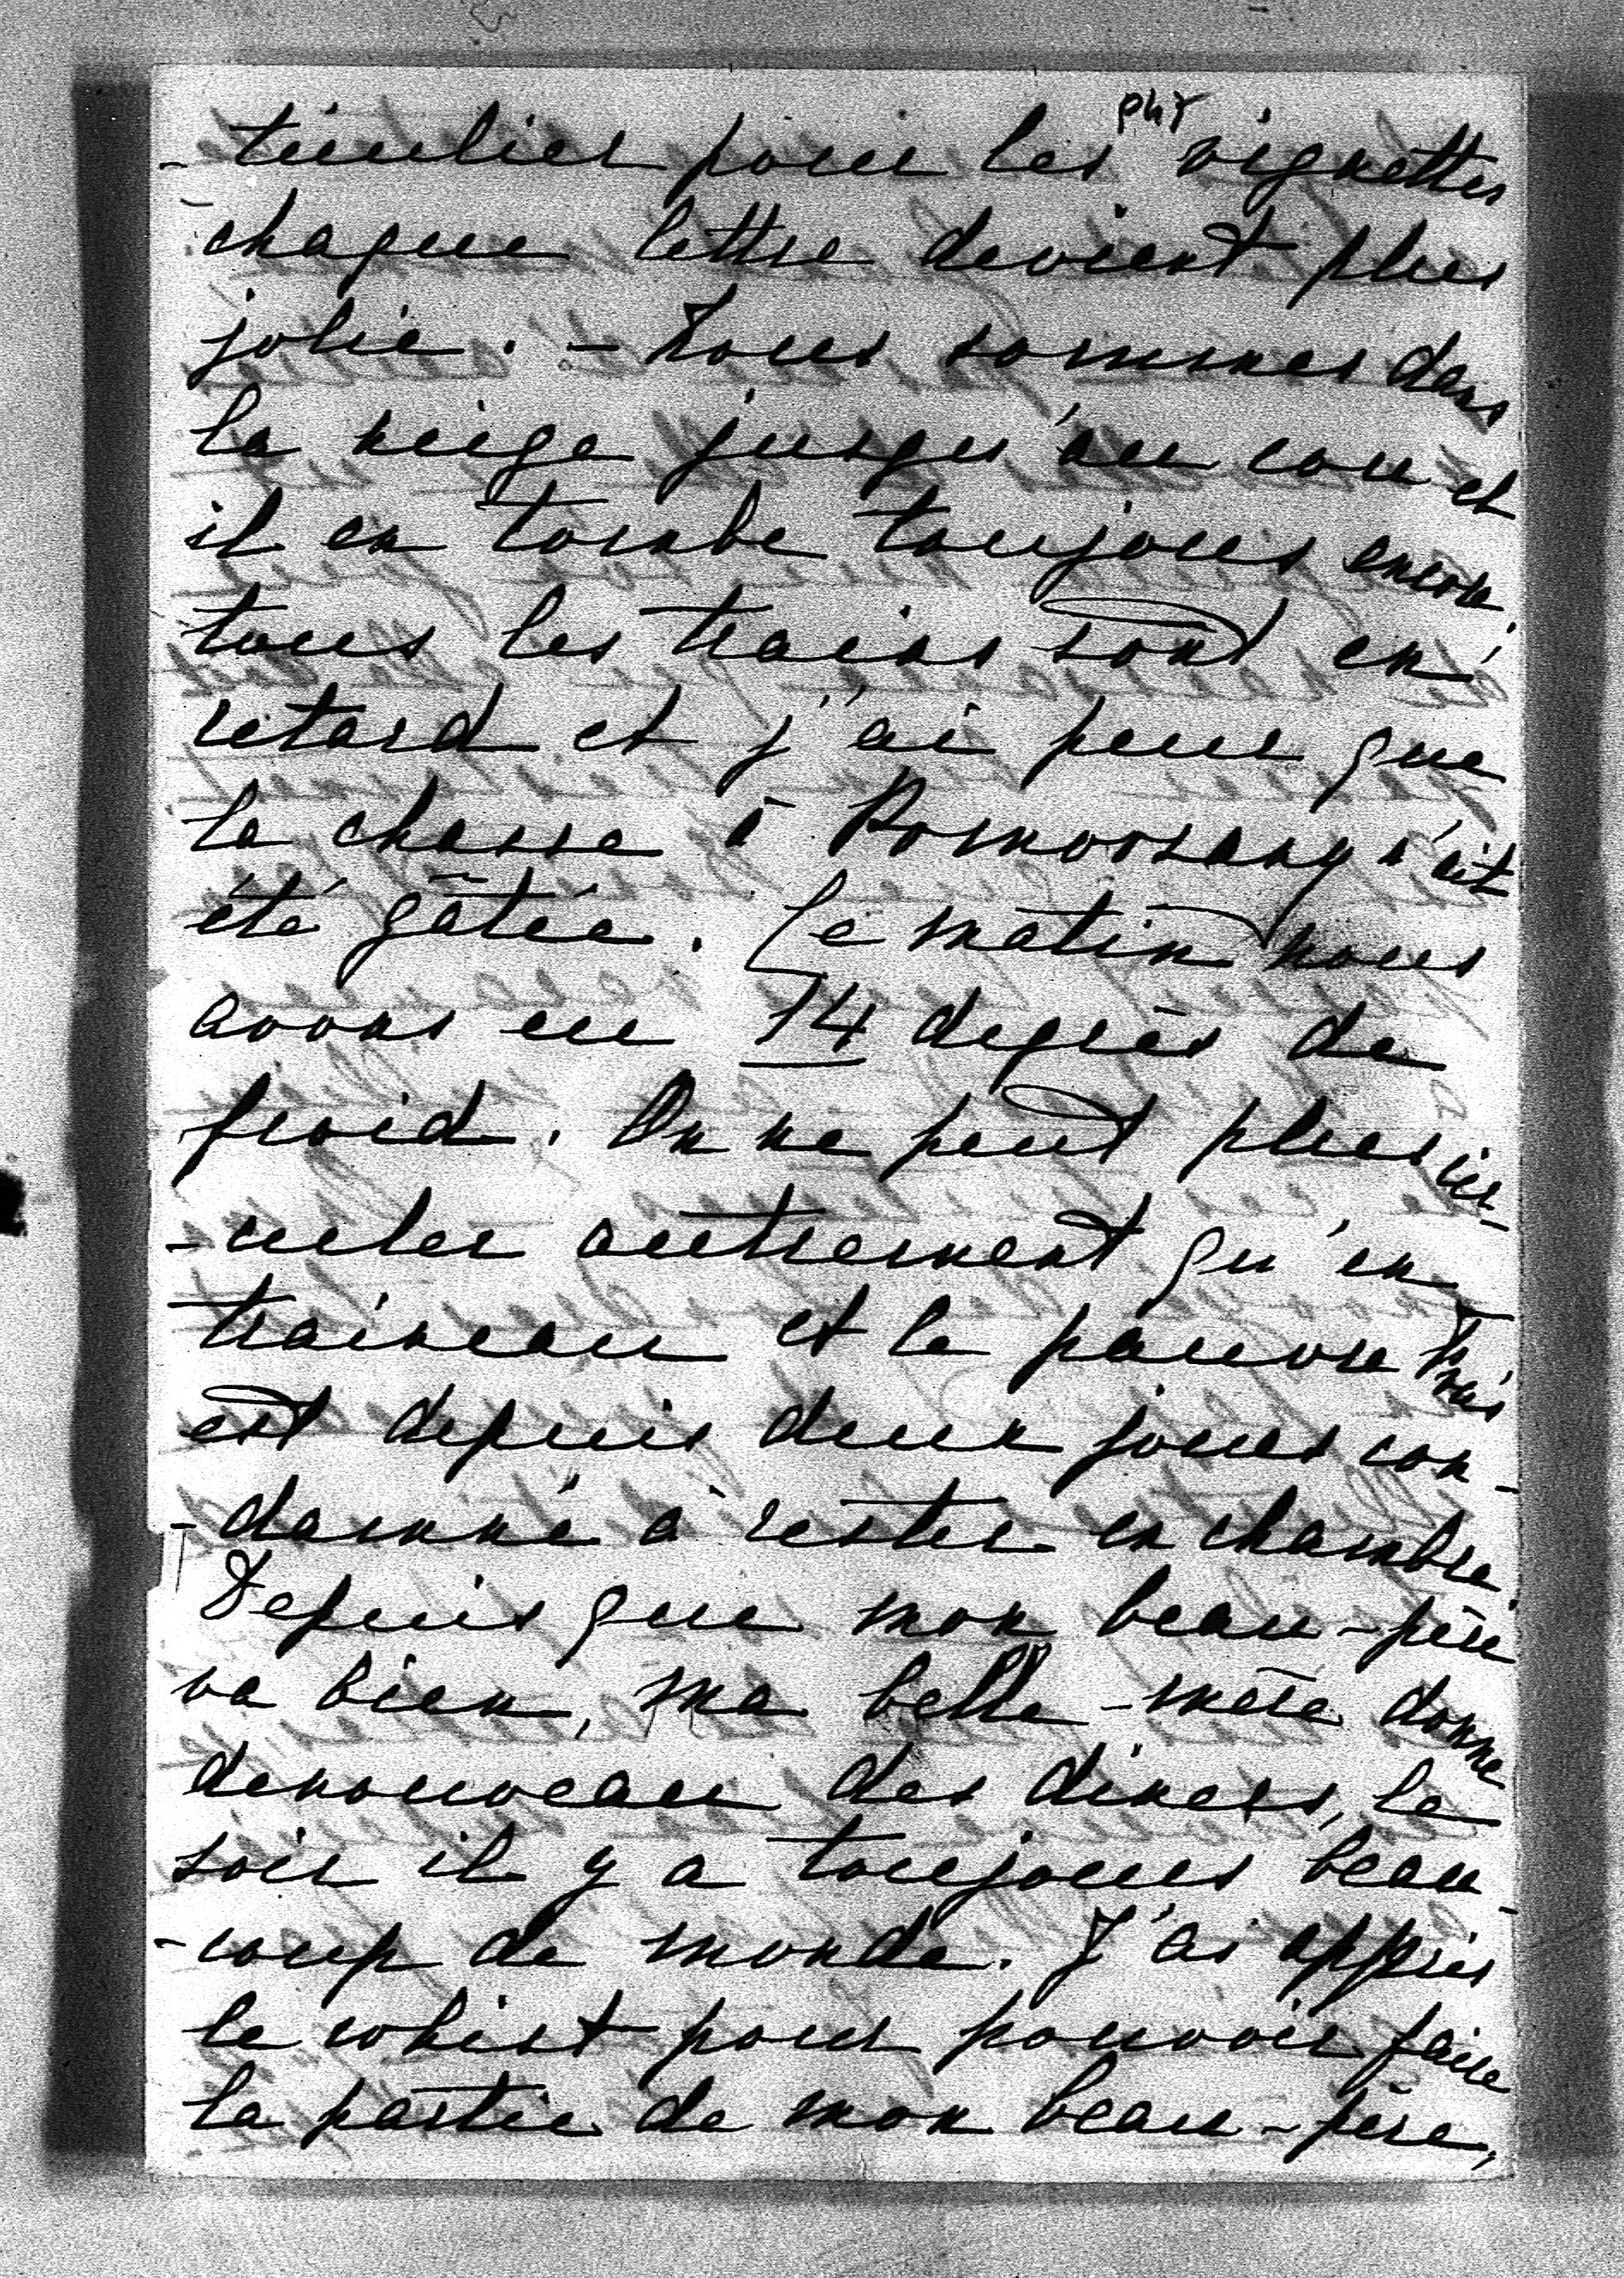 phr
-ticulier pour les vignettes
chaque lettre devient plus
jolie. - Nous sommes dans
la neige jusqu'au cou et
il en tombe toujours encore,
tous les trains sont en
retard et j'ai peur que
la chasse à n'ait
été gâtée. Ce matin nous
avons eu 14 degrès de
froid. On ne peut plus cir-
-culer autrement qu'en
traineau et le pauvre
est depuis deux jours con-
-damné à rester en chambre.
Depuis que mon beau-père
va bien, ma belle-mère donne
denouveau des diners, le
soir il y a toujours beau-
-coup de monde. J'ai appris
le whist pour pouvoir faire
la partie de mon beau-père,